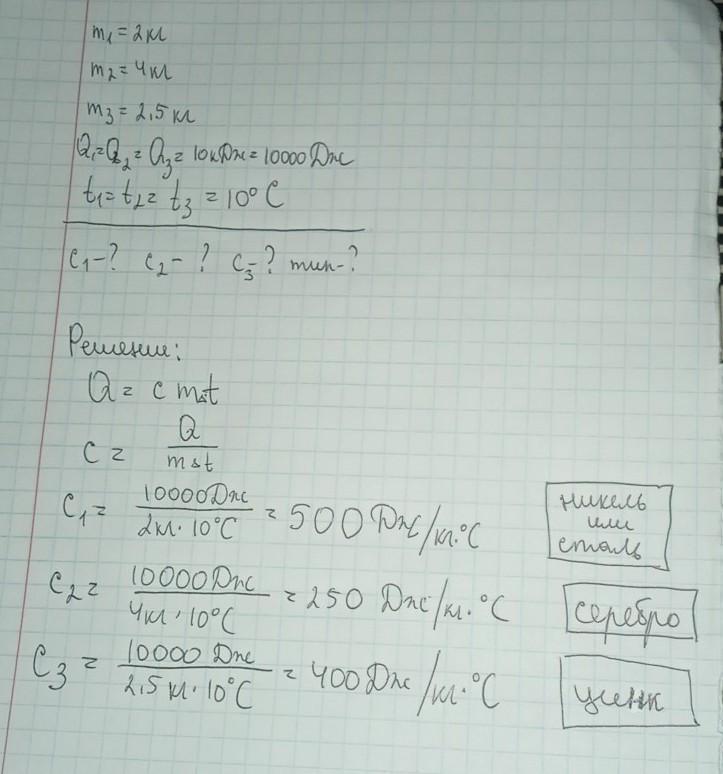 m₁ = 2 кг
m₂ = 4 кг
m₃ = 2,5 кг
Q₁ = Q₂ = Q₃ = 10 кДж = 10000 Дж
t₁ = t₂ = t₃ = 10°C
c₁ - ? c₂ - ? c₃ - ? тип - ?
Решение:
Q = c m Δt
c = Q / mΔt
c₁ = 10000 Дж / 2 кг · 10°C = 500 Дж/кг·°C никель или сталь
c₂ = 10000 Дж / 4 кг · 10°C = 250 Дж/кг·°C серебро
c₃ = 10000 Дж / 2,5 кг · 10°C = 400 Дж/кг·°C цинк